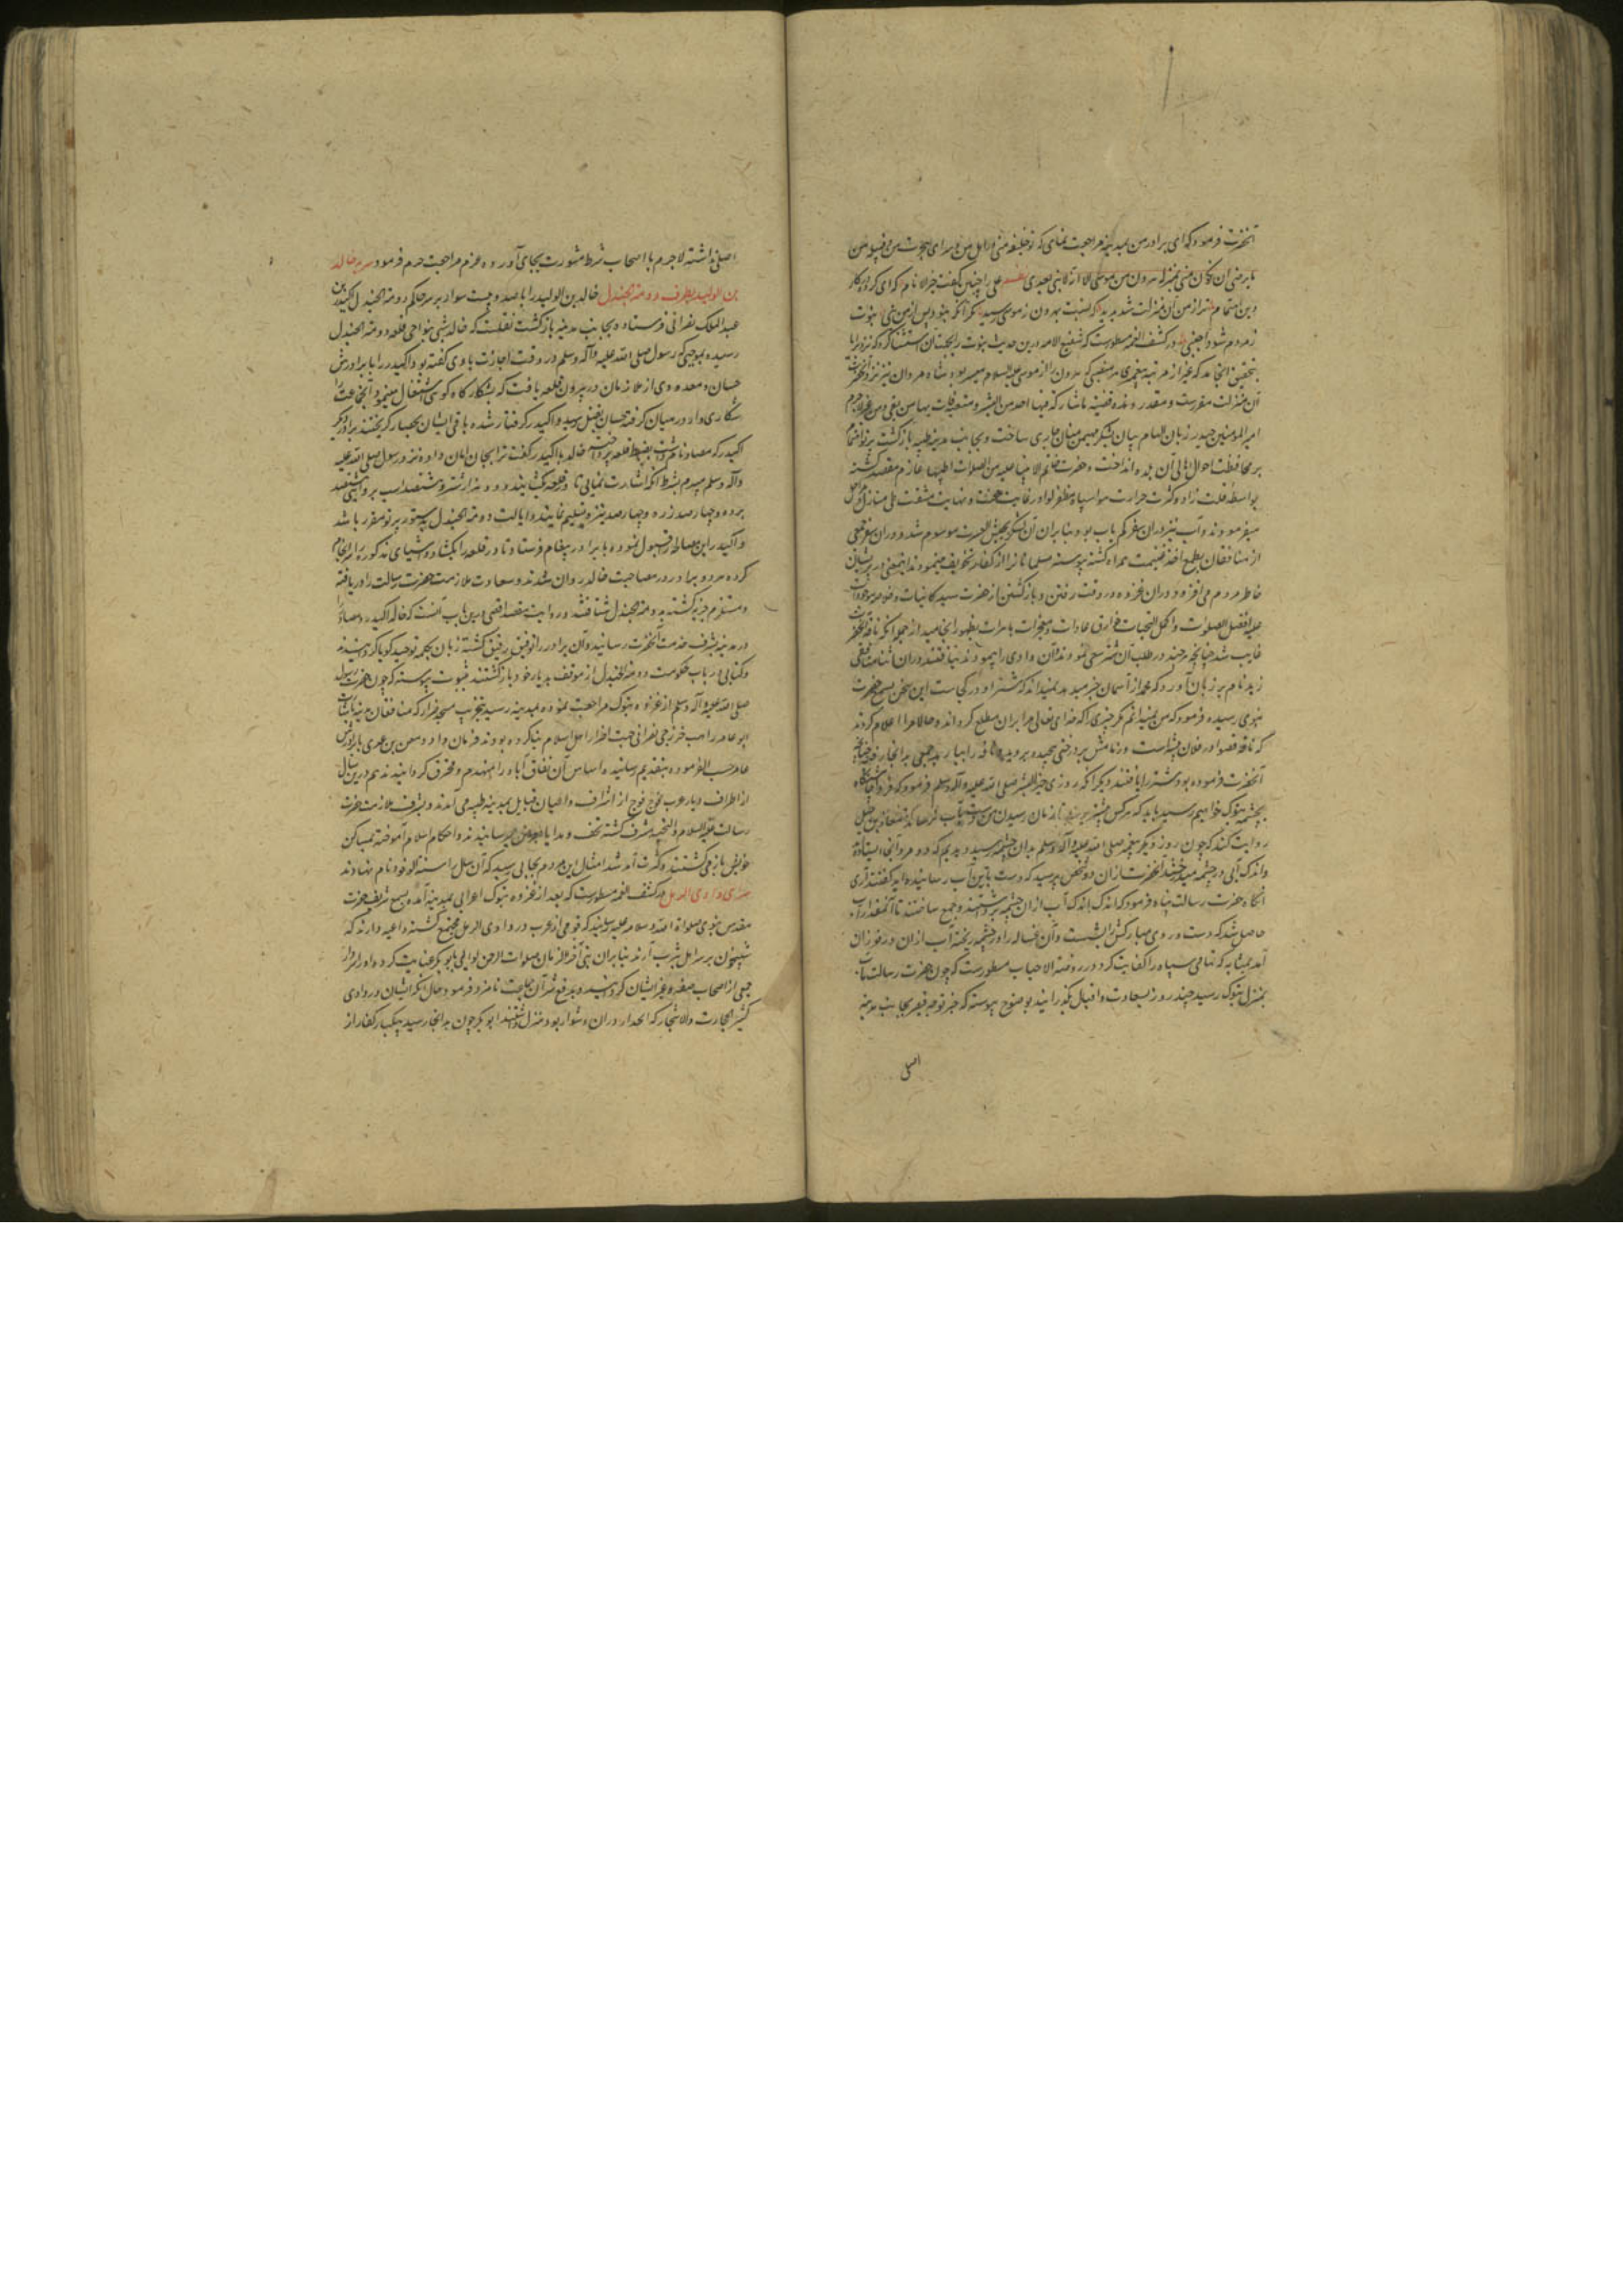 آنحضرت فرمود که ای برادر من بمدینه مراجعت نمای که تو خلیفه منی در اهل من و سرای هجرت من و قبیله من
ان تکون منی بمنزله هرون من موسی الا انه لا نبی بعدی
زمردم شود اجنبی در کشف الغمه مسطورست که شفیع الامه درین حدیث نبوت را بجهت آن استثنا کرد که
بتحقیق انجامد که غیر از مرتبه پیغمبری هر منقبتی که هرون را از موسی علیه السلام میسر بود شاه مردان نیز نزد آنحضرت
آن منزلت مقررست و مقدر
امیر المؤمنین حیدر زبان الهام بیان بشکر مهیمن منان جاری ساخت و بجانب مدینه طیبه بازگشت
بر محافظت احوال اهالی آن بلده انداخت و حضرت خاتم الانبیا علیه من الصلوات اطیبها عازم مقصد گشته
بواسطه قلت زاد و کثرت حرارت هوا سپاه ظفر لوا در غایت محنت و نهایت مشقت طی منازل و مراحل
میفرمودند و آب نیز در آن سفر کم یاب بود بنابران آن لشکر بجیش العسرت موسوم شد و در آن سفر جمعی
از منافقان بطمع اخذ غنیمت همراه گشته پیوسته مسلمانان را از کفار تخویف مینمودند
خاطر مردم می افزود و در آن غزوه در وقت رفتن و بازگشتن از حضرت سید کاینات
علیه افضل الصلوات و اکمل التحیات خوارق عادات و معجزات باهرات بظهور انجامید از جمله آنکه ناقه آنحضرت
غایب شد چنانچه هر چند در طلب آن شتر سعی نمودند و آن وادی را پیمودند نیافتند در آن اثنا منافقی
زید نام بر زبان آورد که محمد از آسمان خبر میدهد و نمیداند که شتر او در کجاست این سخن بسمع حضرت
نبوی رسیده فرمود که من نمیدانم مگر چیزی را که خدای تعالی مرا بر آن مطلع گرداند و حالا مرا اعلام کردند
که ناقه قصوا در فلان بیشه است و زمامش بر درختی پیچیده بروید و ناقه را بیارید جمعی به آنجا رفته چنانچه
آنحضرت فرموده بود شتر را یافتند دیگر آنکه روزی خیر البشر صلی الله علیه وآله وسلم فرمود که فردا چاشتگاه
بچشمه تبوک خواهیم رسید باید که هر کس پیشتر برسد تا زمان رسیدن من دست بآب نرساند معاذ بن جبل
روایت کند که چون روز دیگر پیغمبر صلی الله علیه وآله وسلم بدان چشمه رسید دیدیم که دو مرد آنجا ایستاده
و اندک آبی در چشمه میدرخشید آنحضرت از آن دو شخص پرسید که دست باین آب رسانیده اید گفتند آری
آنگاه حضرت رسالت پناه فرمود که اندک اندک آب از آن چشمه برداشتند و جمع ساختند تا آنمقدار آب
حاصل شد که دست و روی مبارکش را بشست و آن غساله را در چشمه ریخته آب از آن در فوران
آمد بمثابه که تمامی سپاه را کفایت کرد و در روضة الاحباب مسطورست که چون حضرت رسالت مآب
بمنزل تبوک رسید چند روز بسعادت و اقبال بگذرانید بوضوح پیوست که خبر توجه قیصر بجانب مدینه
اصلی
اصلی نداشته لاجرم با اصحاب شرط مشورت بجای آورده عزم مراجعت جزم فرمود سریه خالد
بن الولید بطرف دومة الجندل خالد بن الولید را با صد و بیست سوار بر سر حاکم دومة الجندل اکیدر بن
عبد الملک نصرانی فرستاده بجانب مدینه بازگشت نقلست که خالد شبی بنواحی قلعه دومة الجندل
رسیده بموجبی که رسول صلی الله علیه وآله وسلم در وقت اجازت با وی گفته بود اکیدر را با برادرش
حسان و معدودی از ملازمان در بیرون قلعه یافت که بشکار گاو کوهی اشتغال مینمود و آنجماعت را
شکاری وار در میان گرفته حسان بقتل رسید و اکیدر گرفتار شده باقی ایشان بحصار گریختند برادر دیگر
اکیدر که مصاد نام داشت بضبط قلعه پرداخت خالد با اکیدر گفت ترا بجان امان داده نزد رسول صلی الله علیه
وآله وسلم میبرم بشرط آنکه اشارت نمایی تا در قلعه بگشایند و دو هزار شتر و هشتصد اسب
برده و چهارصد زره و چهارصد نیزه تسلیم نمایند و ایالت دومة الجندل بدستور بر تو مقرر باشد
و اکیدر این مصالحه را قبول نموده با برادر پیغام فرستاد تا در قلعه را بگشاد و اشیای مذکوره را سرانجام
کرده هر دو برادر در مصاحبت خالد روان شدند و سعادت ملازمت حضرت رسالت را دریافته
و ملتزم جزیه گشته بدومة الجندل شتافتند و روایت مقصد اقصی درین باب آنست که خالد اکیدر و مصاد را
در مدینه بشرف خدمت آنحضرت رسانید و آن برادر را توفیق رفیق گشته زبان بکلمه توحید گویا گردانیدند
و کتابی در باب حکومت دومة الجندل از موقف بدیار خود بازگشتند ثبوت پیوسته که چون حضرت رسول
صلی الله علیه وآله وسلم از غزوه تبوک مراجعت نموده بمدینه رسید بتخریب مسجد ضرار که منافقان مدینه باشارت
ابو عامر راهب خزرجی نصرانی جهت اضرار اهل اسلام بنا کرده بودند فرمان داد و معن بن عدی
عامر حسب الفرموده بتقدیم رسانیده اساس آن نفاق آباد را منهدم و محترق گردانیدند هم درین سال
از اطراف دیار عرب فوج فوج از اشراف و اعیان قبایل بمدینه طیبه می آمدند و بشرف ملازمت حضرت
رسالت علیه السلام و التحیه مشرف گشته تحف و هدایا بعرض میرسانیدند و احکام اسلام آموخته بمساکن
خویش باز می گشتند و کثرت آمد شد امثال این مردم بجایی رسید که آن سال را سنة الوفود نام نهادند
غزای وادی الرمل در کشف الغمه مسطورست که بعد از غزوه تبوک اعرابی بمدینه آمده بسمع شریف حضرت
مقدس نبوی صلوات الله و سلامه علیه رسانید که قومی از عرب در وادی الرمل مجتمع گشته داعیه دارند که
شبیخون بر سر اهل یثرب آرند بنابران نبی آخر الزمان صلوات الرحمن لوایی بابوبکر عنایت کرده او را بر
جمعی از اصحاب صفه و غیر ایشان گردانید و بدفع شر آن جماعت نامزد فرمود و حال آنکه ایشان در وادی
کثیر الحجارت والاشجار که انحدار در آن دشوار بود منزل داشتند ابوبکر چون به آنجا رسید بیکبار کفار از